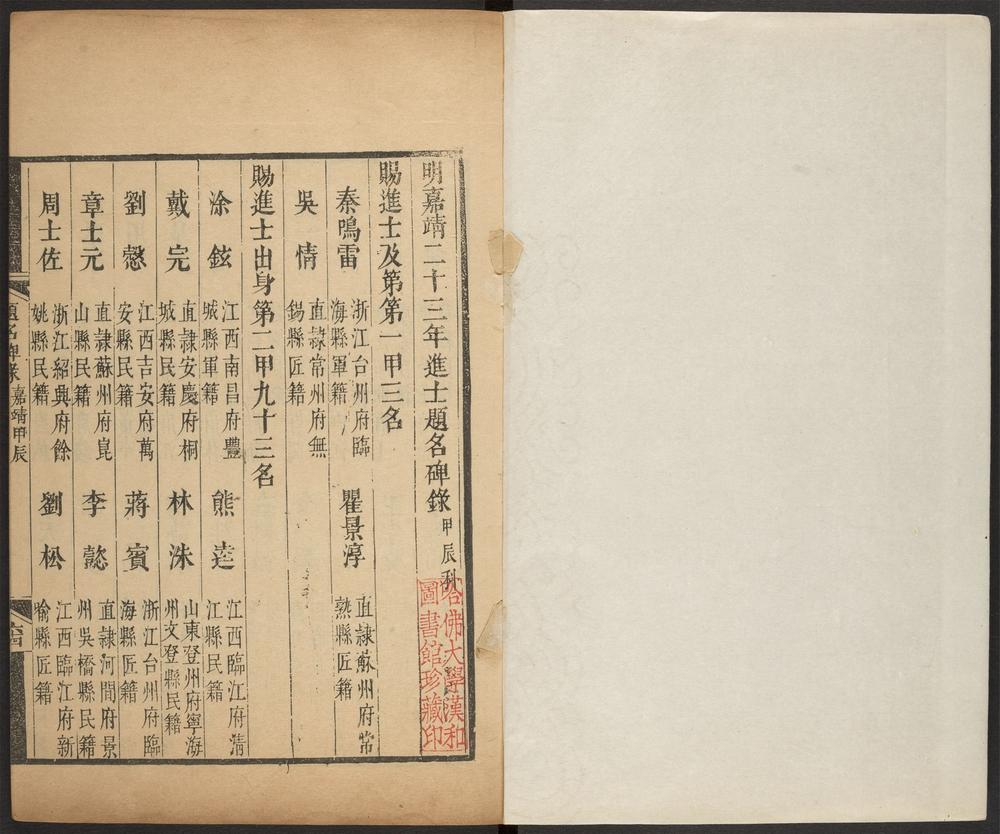 明嘉靖二十三年進士題名碑錄甲辰科
哈佛大學漢和
圖書館珍藏印
賜進士及第第一甲三名
秦鳴雷
浙江台州府臨
海縣軍籍
瞿景淳
直隸蘇州府常
熟縣匠籍
吳情
直隸常州府無
錫縣匠籍
賜進士出身第二甲九十三名
涂鉉
江西南昌府豐
城縣軍籍
熊逵
江西臨江府清
江縣民籍
戴完
直隸安慶府桐
城縣民籍
林洙
山東登州府寧海
州文登縣民籍
劉慤
江西吉安府萬
安縣民籍
蔣賓
浙江台州府臨
海縣匠籍
章士元
直隸蘇州府崑
山縣民籍
李懿
直隸河間府景
州吳橋縣民籍
周士佐
浙江紹興府餘
姚縣民籍
劉松
江西臨江府新
喻縣匠籍
題名碑錄 嘉靖甲辰